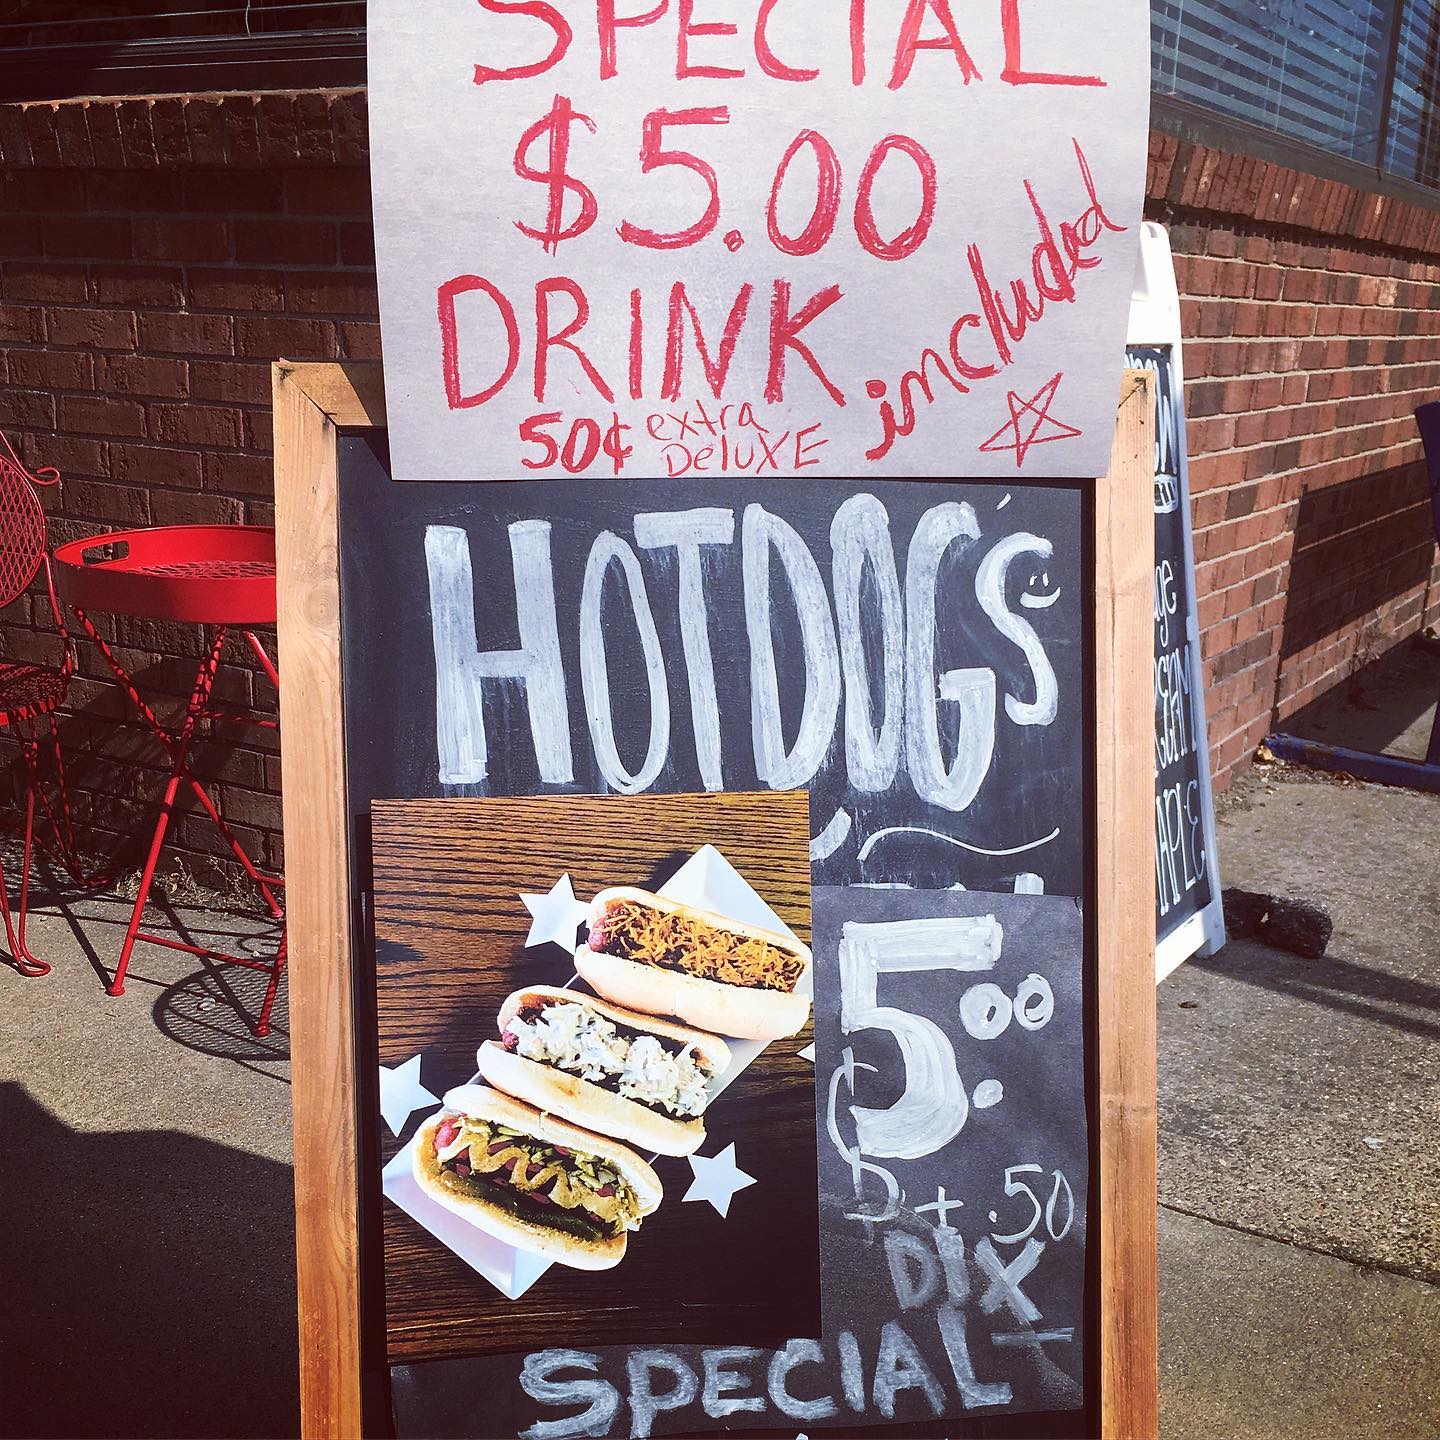 SPECIAL
$5.00
DRINK included
50¢ extra
DeluxE
HOTDOG's
5.00
$ + .50
DIX
SPECIAL
age
MAPLE